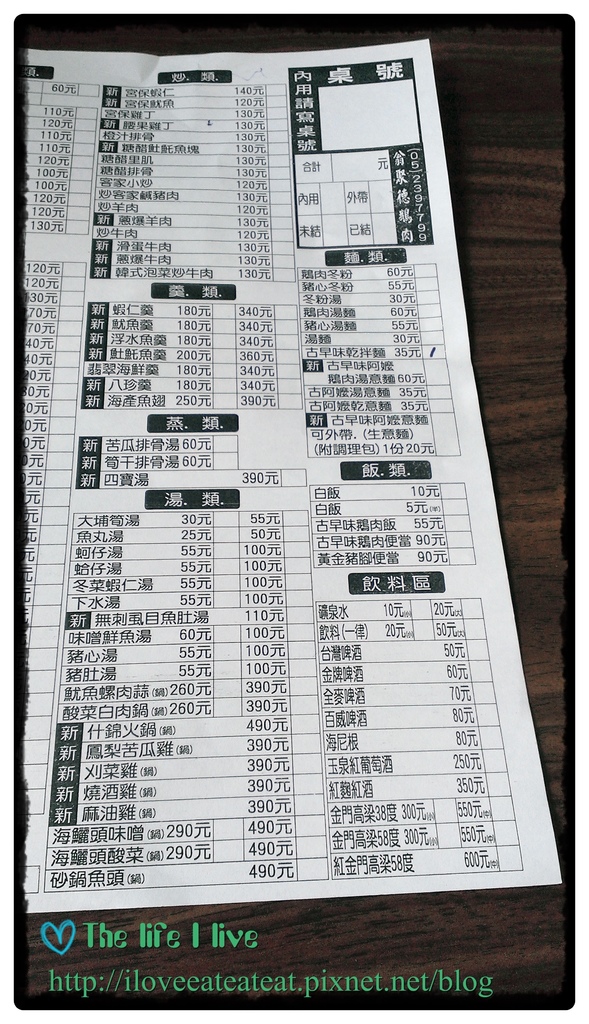 類.
60元
110元
120元
110元
110元
120元
100元
100元
120元
120元
130元
120元
120元
炒.類.
新 宮保蝦仁 140元
新 宮保魷魚 120元
宮保雞丁 130元
新 腰果雞丁 130元
橙汁排骨 130元
新 糖醋𩵚魠魚塊 130元
糖醋里肌 130元
糖醋排骨 130元
客家小炒 120元
炒客家鹹豬肉 130元
炒羊肉 120元
新 蔥爆羊肉 130元
炒牛肉 120元
新 滑蛋牛肉 130元
新 蔥爆牛肉 130元
新 韓式泡菜炒牛肉 130元
羹.類.
新 蝦仁羹 180元 340元
新 魷魚羹 180元 340元
新 浮水魚羹 180元 340元
新 𩵚魠魚羹 200元 360元
翡翠海鮮羹 180元 340元
新 八珍羹 180元 340元
新 海產魚翅 250元 390元
蒸.類.
新 苦瓜排骨湯 60元
新 筍干排骨湯 60元
新 四寶湯 390元
湯.類.
大埔筍湯 30元 55元
魚丸湯 25元 50元
蚵仔湯 55元 100元
蛤仔湯 55元 100元
冬菜蝦仁湯 55元 100元
下水湯 55元 100元
新 無刺虱目魚肚湯 110元
味噌鮮魚湯 60元 100元
豬心湯 55元 100元
豬肚湯 55元 100元
魷魚螺肉蒜(鍋) 260元 390元
酸菜白肉鍋(鍋) 260元 390元
新 什錦火鍋(鍋) 490元
新 鳳梨苦瓜雞(鍋) 390元
新 刈菜雞(鍋) 390元
新 燒酒雞(鍋) 390元
新 麻油雞(鍋) 390元
海鱺頭味噌(鍋) 290元 490元
海鱺頭酸菜(鍋) 290元 490元
砂鍋魚頭(鍋) 490元
桌 號
內用請寫桌號
合計 元
內用 外帶
未結 已結
翁聚德鵝肉
(05)2397799
麵.類.
鵝肉冬粉 60元
豬心冬粉 55元
冬粉湯 30元
鵝肉湯麵 60元
豬心湯麵 55元
湯麵 30元
古早味乾拌麵 35元
新 古早味阿嬤
鵝肉湯意麵 60元
古阿嬤湯意麵 35元
古阿嬤乾意麵 35元
新 古早味阿嬤意麵
可外帶.(生意麵)
(附調理包)1份20元
飯.類.
白飯 10元
白飯 5元(半)
古早味鵝肉飯 55元
古早味鵝肉便當 90元
黃金豬腳便當 90元
飲料區
礦泉水 10元(小) 20元(大)
飲料(一律) 20元(小) 50元(大)
台灣啤酒 50元
金牌啤酒 60元
全麥啤酒 70元
百威啤酒 80元
海尼根 80元
玉泉紅葡萄酒 250元
紅麴紅酒 350元
金門高梁38度 300元(小) 550元(中)
金門高梁58度 300元(小) 550元(中)
紅金門高梁58度 600元(中)
The life I live
http://iloveeateateat.pixnet.net/blog